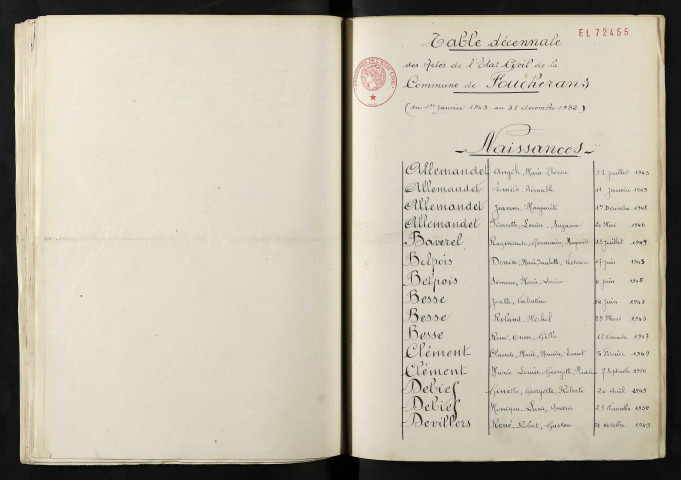 EL 72455
Table décennale
des Actes de l'Etat Civil de la
Commune de Foucherans
(du 1er Janvier 1943 au 31 décembre 1952)
Naissances
Allemandet Angèle, Marie Thérèse Juillet 1943
Allemandet 11 Janvier 1945
Allemandet Jeanne, Marguerite 1er Décembre 1945
Allemandet Pierrette, Louise, Suzanne 20 Mai 1946
Baverel Raymonde, Germaine, Marguerite 15 Juillet 1949
Belpois Denise, Marie, 17 Juin 1943
Belpois Simone, Marie, Louise 6 Juin 1945
Besse Josette, Valentine 24 Juin 1943
Besse Roland, Michel 29 Mars 1945
Besse René, 1947
Clément Claude, Marie, Maurice, Ernest 5 Février 1949
Clément Marie, Louise, Georgette, 7 Septembre 1950
Debief Ginette, Georgette, Roberte 20 Avril 1949
Debief Monique, Lucie, Andrée 23 Novembre 1950
Devillers René, Robert, Gaston 21 Octobre 1943